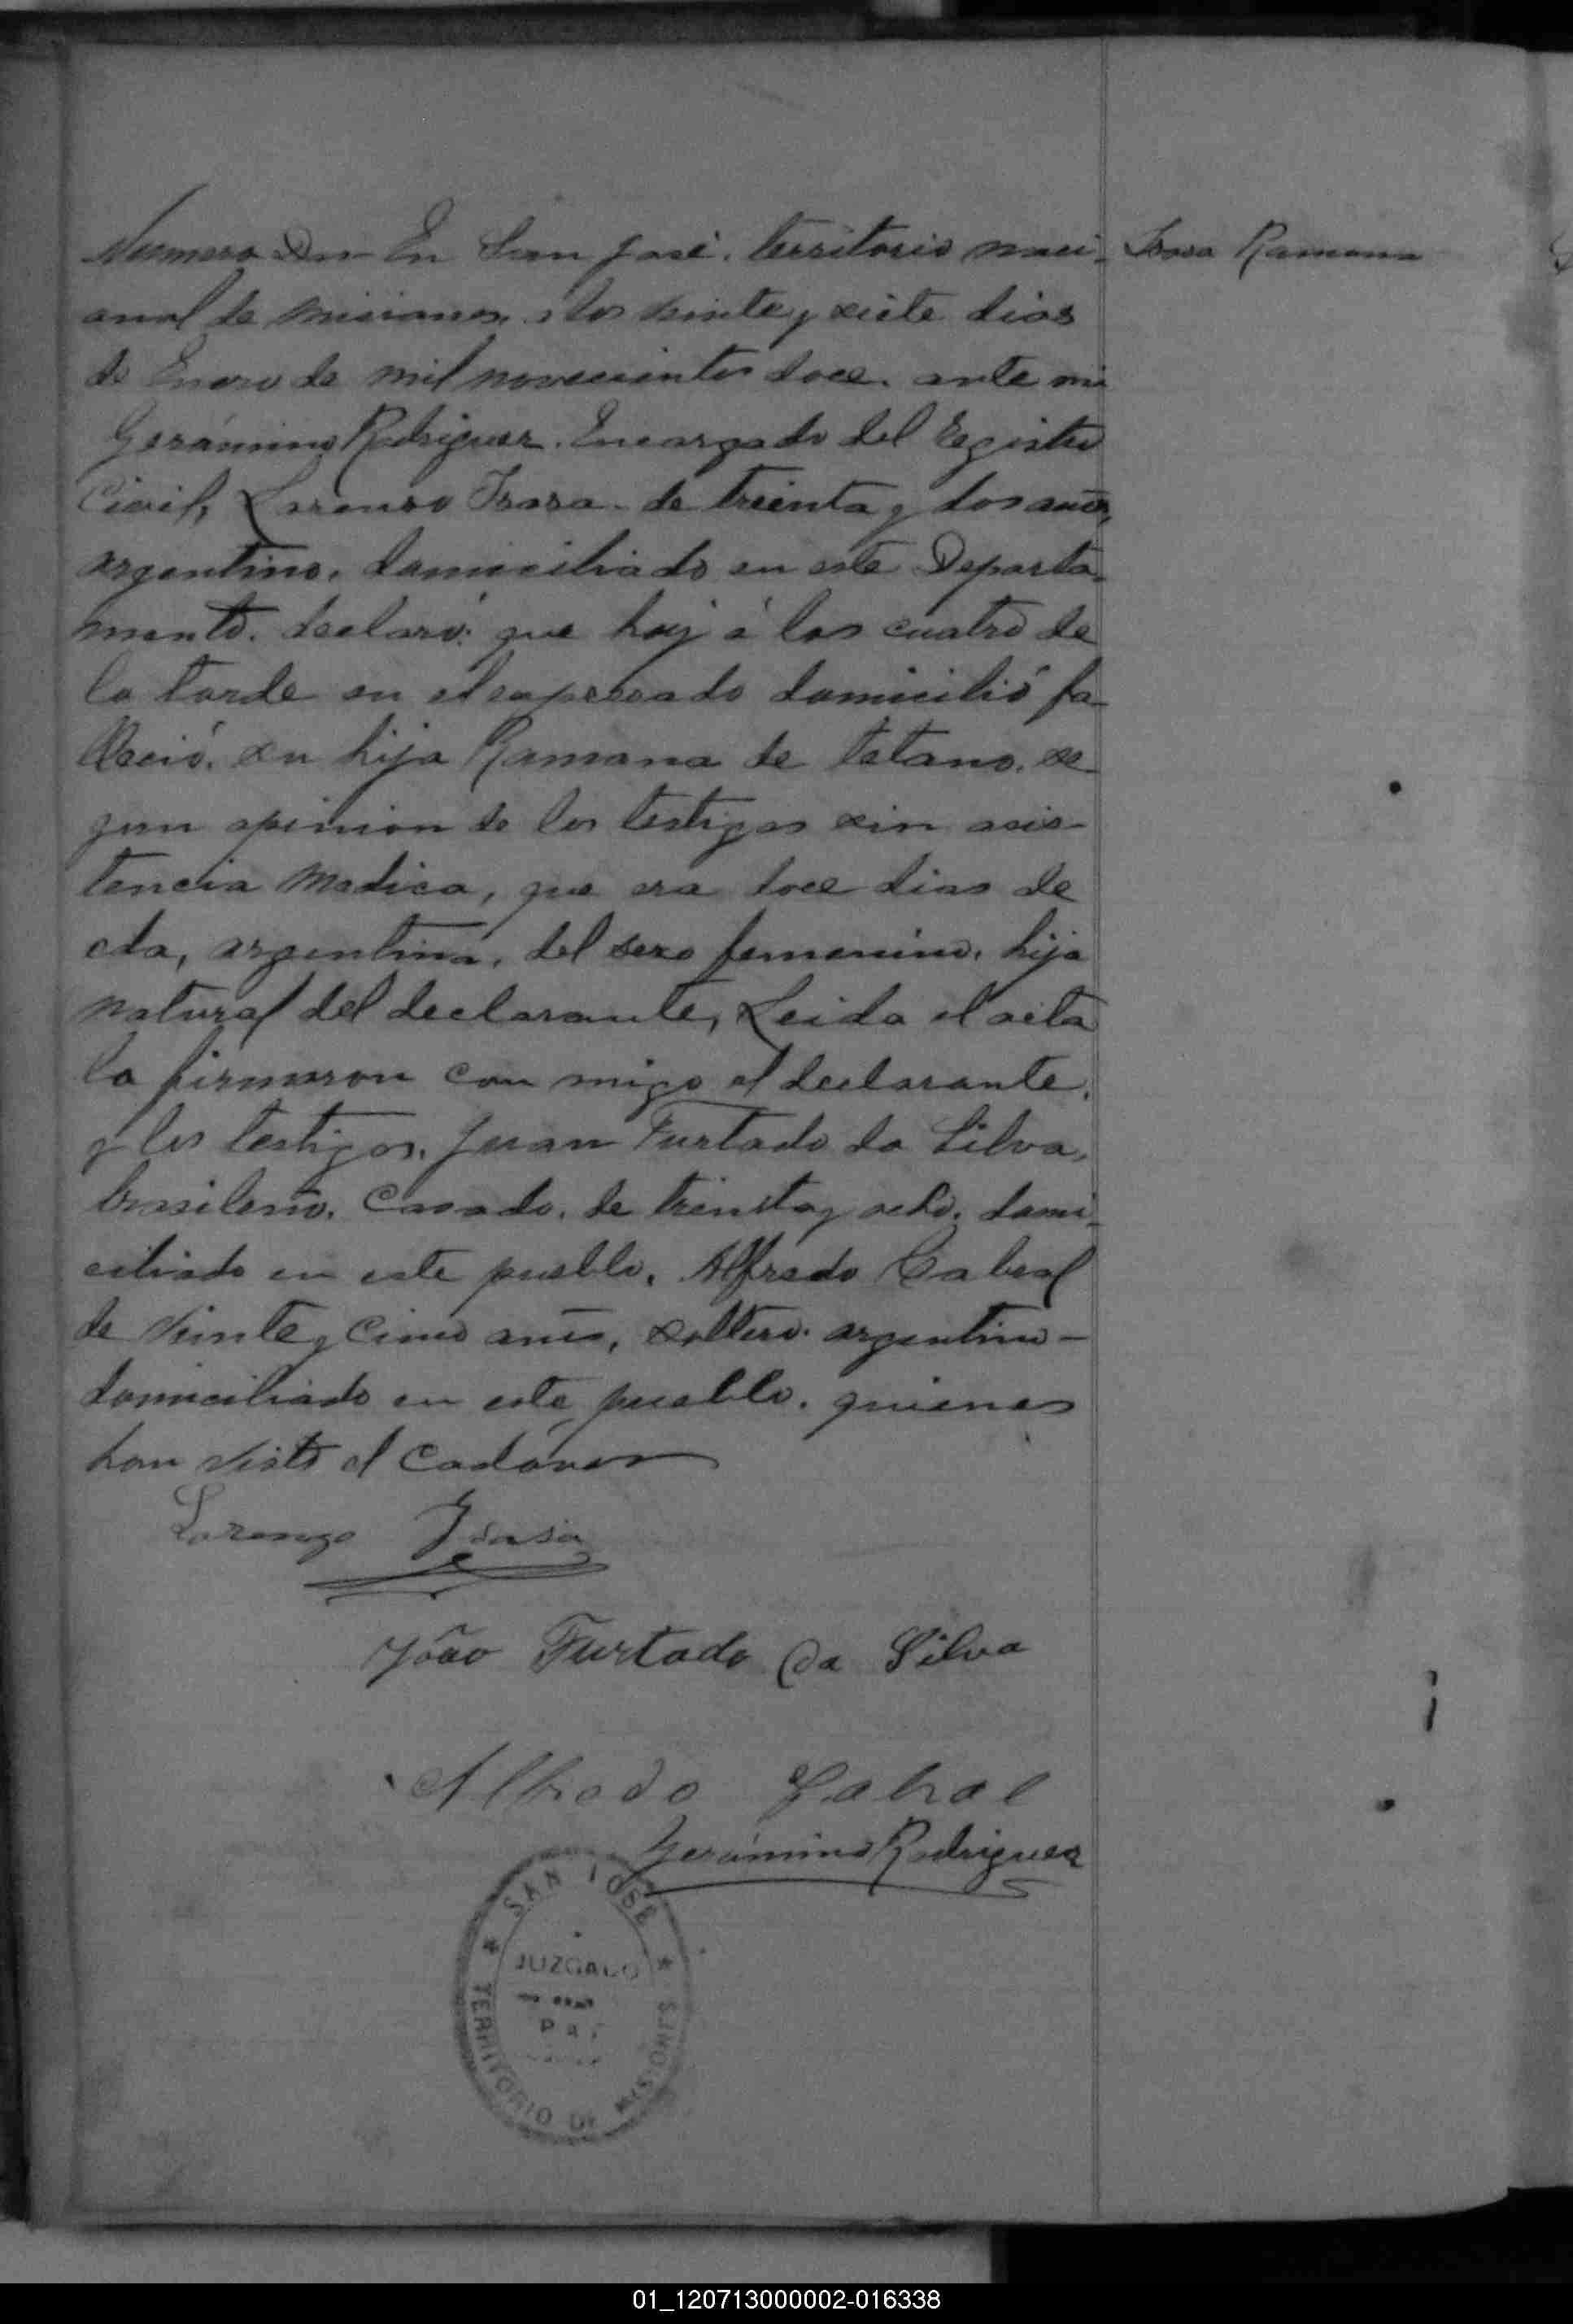 Numero Dos En San José, territorio naci-
onal de Misiones, a los veinte y siete dias
de Enero de mil novecientos doce, ante mi
Gerónimo Rodriguez. Encargado del Registro
Civil, Lorenso Isasa de treinta y dos años,
argentino, domiciliado en este Departa-
mento. declaró: que hoy á las cuatro de
la tarde en el expresado domicilió fa-
lleció, su hija Ramona de tetano, se-
gun opinion de los testigos sin asis-
tencia Medica, que era doce dias de
eda, argentina, del sexo femenino, hija
natural del declarante, Leida el acta
la firmaron con migo el declarante,
y los testigos, Juan Furtado da Silva,
brasileño, Casado, de treinta y ocho, domi-
ciliado en este pueblo, Alfredo Cabral
de Veinte y Cinco anõs, soltero. argentino -
domiciliado en este pueblo. quienes
han visto el Cadáver
Isasa Ramona
Lorenzo Isasa
João Furtado da Silva
Alfredo Cabral
Gerónimo Rodriguez
SAN JOSE
JUZGADO
DE
PAZ
TERRITORIO DE MISIONES
01_120713000002-016338